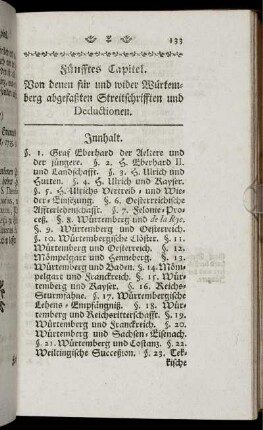 133
Fünfftes Capitel.
Von denen für und wider Würtem-
berg abgefaßten Streitschrifften und
Deductionen.
Jnnhalt.
§. 1. Graf Eberhard der Aeltere und
der jüngere. §. 2. H. Eberhard II.
und Landschafft. §. 3. H. Ulrich und
Hutten. §. 4. H. Ulrich und Kayser.
§. 5. H. Ulrichs Vertreib- und Wie-
der-Einsetzung. §. 6. Oesterreichische
Affterlehenschafft. §. 7. Felonie-Pro-
§. 8. Würtemberg und de la Rye.
§. 9. Würtemberg und Oesterreich.
§. 10. Würtembergische Clöster. §. 11.
Würtemberg und Oesterreich. §. 12.
Mömpelgart und Henneberg. §. 13.
Würtemberg und Baden. §. 14. Möm-
pelgart und Franckreich. §. 15. Wür-
temberg und Kayser. §. 16. Reichs-
Sturmfahne. §. 17. Würtembergische
Lehens-Empfängniß. §. 18. Wür-
temberg und Reichsritterschafft. §. 19.
Würtemberg und Franckreich. §. 20.
Würtemberg und Sachsen-Eisenach.
§. 21. Würtemberg und Costanz. §. 22.
Weiltingische Succession. §. 23. Tek-
kische